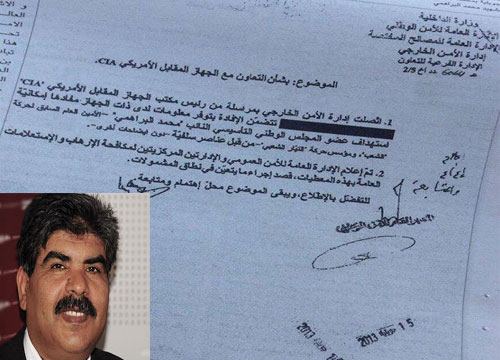 وزارة الداخلية
الإدارة العامة للأمن الوطني
الإدارة العامة للمصالح المختصة
إدارة الأمن الخارجي
الإدارة الفرعية للتعاون
الموضوع: بشأن التعاون مع الجهاز المقابل الأمريكي CIA.
1. اتصلت إدارة الأمن الخارجي بمراسلة من رئيس مكتب الجهاز المقابل الأمريكي "CIA"
تتضمن الإفادة بتوفر معلومات لدى ذات الجهاز مفادها إمكانية
استهداف عضو المجلس الوطني التأسيسي النائب "محمد البراهمي" -الأمين العام السابق لحركة
"الشعب"، ومؤسس حركة "التيار الشعبي"- من قبل عناصر سلفية -دون إيضاحات أخرى-.
2. تم إعلام الإدارة العامة للأمن العمومي والإدارتين المركزيتين لمكافحة الإرهاب والاستعلامات
العامة بهذه المعطيات، قصد إجراء ما يتعين في نطاق المشمولات.
للتفضل بالإطلاع، ويبقى الموضوع محل إهتمام ومتابعة
15 2013
2013